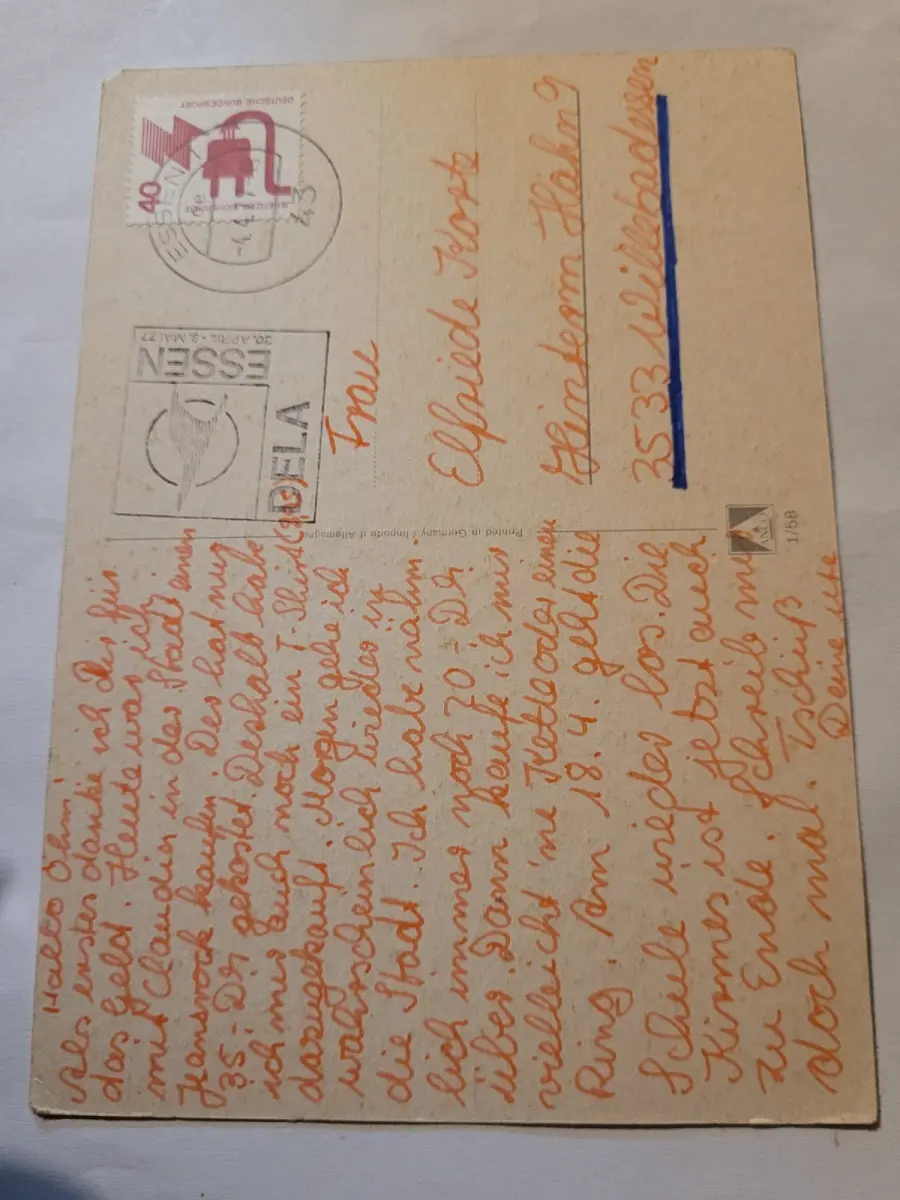 Hallo Öhmi
Als erstes danke ich dir für
das Geld. Heute war ich
mit Claudia in der Stadt einen
Jeansrock kaufen. Der hat nur
35,- DM gekostet. Deshalb habe
ich mir auch noch ein T-Shirt
dazugekauft. Morgen gehe ich
wahrscheinlich wieder in
die Stadt. Ich habe nähm-
lich immer noch 70,- DM
über. Dann kaufe ich mir
vielleicht 'ne Kette oder einen
Ring. Am 18.4. geht die
Schule wieder los. Die
Kirmes ist jetzt auch
zu Ende. Schreib mir
doch mal. Tschüß
Deine Ute
Printed in Germany / Importé d'Allemagne
DEUTSCHE BUNDESPOST
40
ESSEN 1
43
ESSEN
20. APRIL - 3. MAI 77
DELA
Frau
Elfriede Korte
Hinterm Hahn 9
3533 Willebadessen
ANCO
1/58